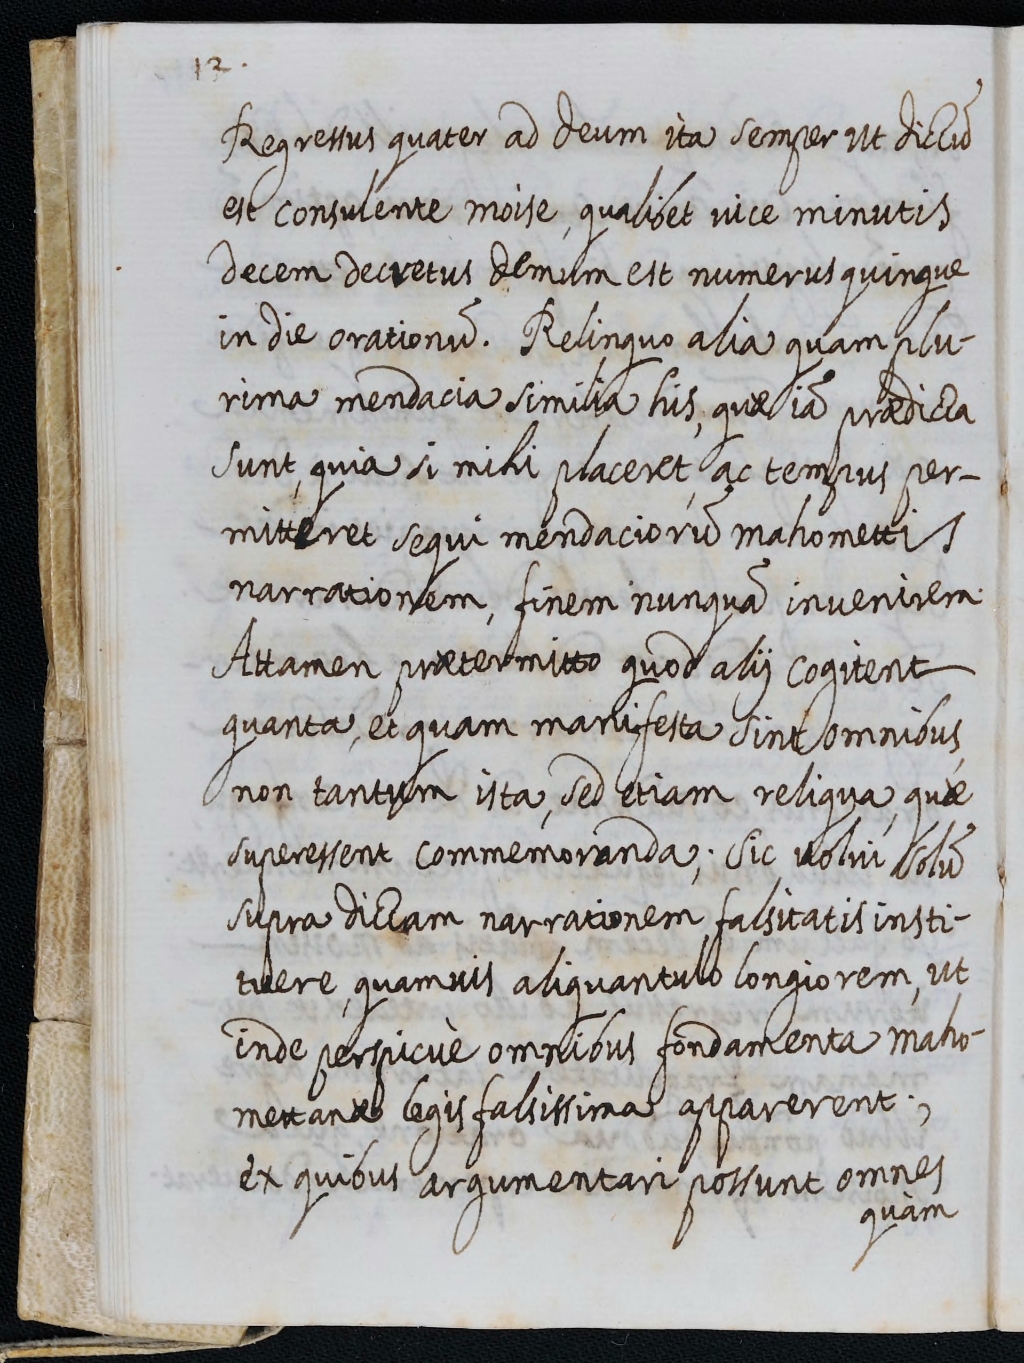 12.
Regressus quater ad Deum ita semper ut dictũ
est consulente moise, qualibet vice minutis
decem decretus demum est numerus quinque
in die orationũ. Relinquo alia quam plu-
rima mendacia similia his, quæ iã prædicta
sunt, quia si mihi placeret, ac tempus per-
mitteret sequi mendaciorũ mahomettis
narrationem, finem nunquã invenirem.
Attamen prætermitto quod alij cogitent
quanta, et quam manifesta sint omnibus,
non tantum ista, sed etiam reliqua, quæ
superessent commemoranda; sic uolui solũ
supra dictam narrationem falsitatis insti-
tuere, quamuis aliquantulo longiorem, ut
inde perspicuè omnibus fondamenta maho-
mettanæ legis falsissima apparerent;
ex quibus argumentari possunt omnes
quàm